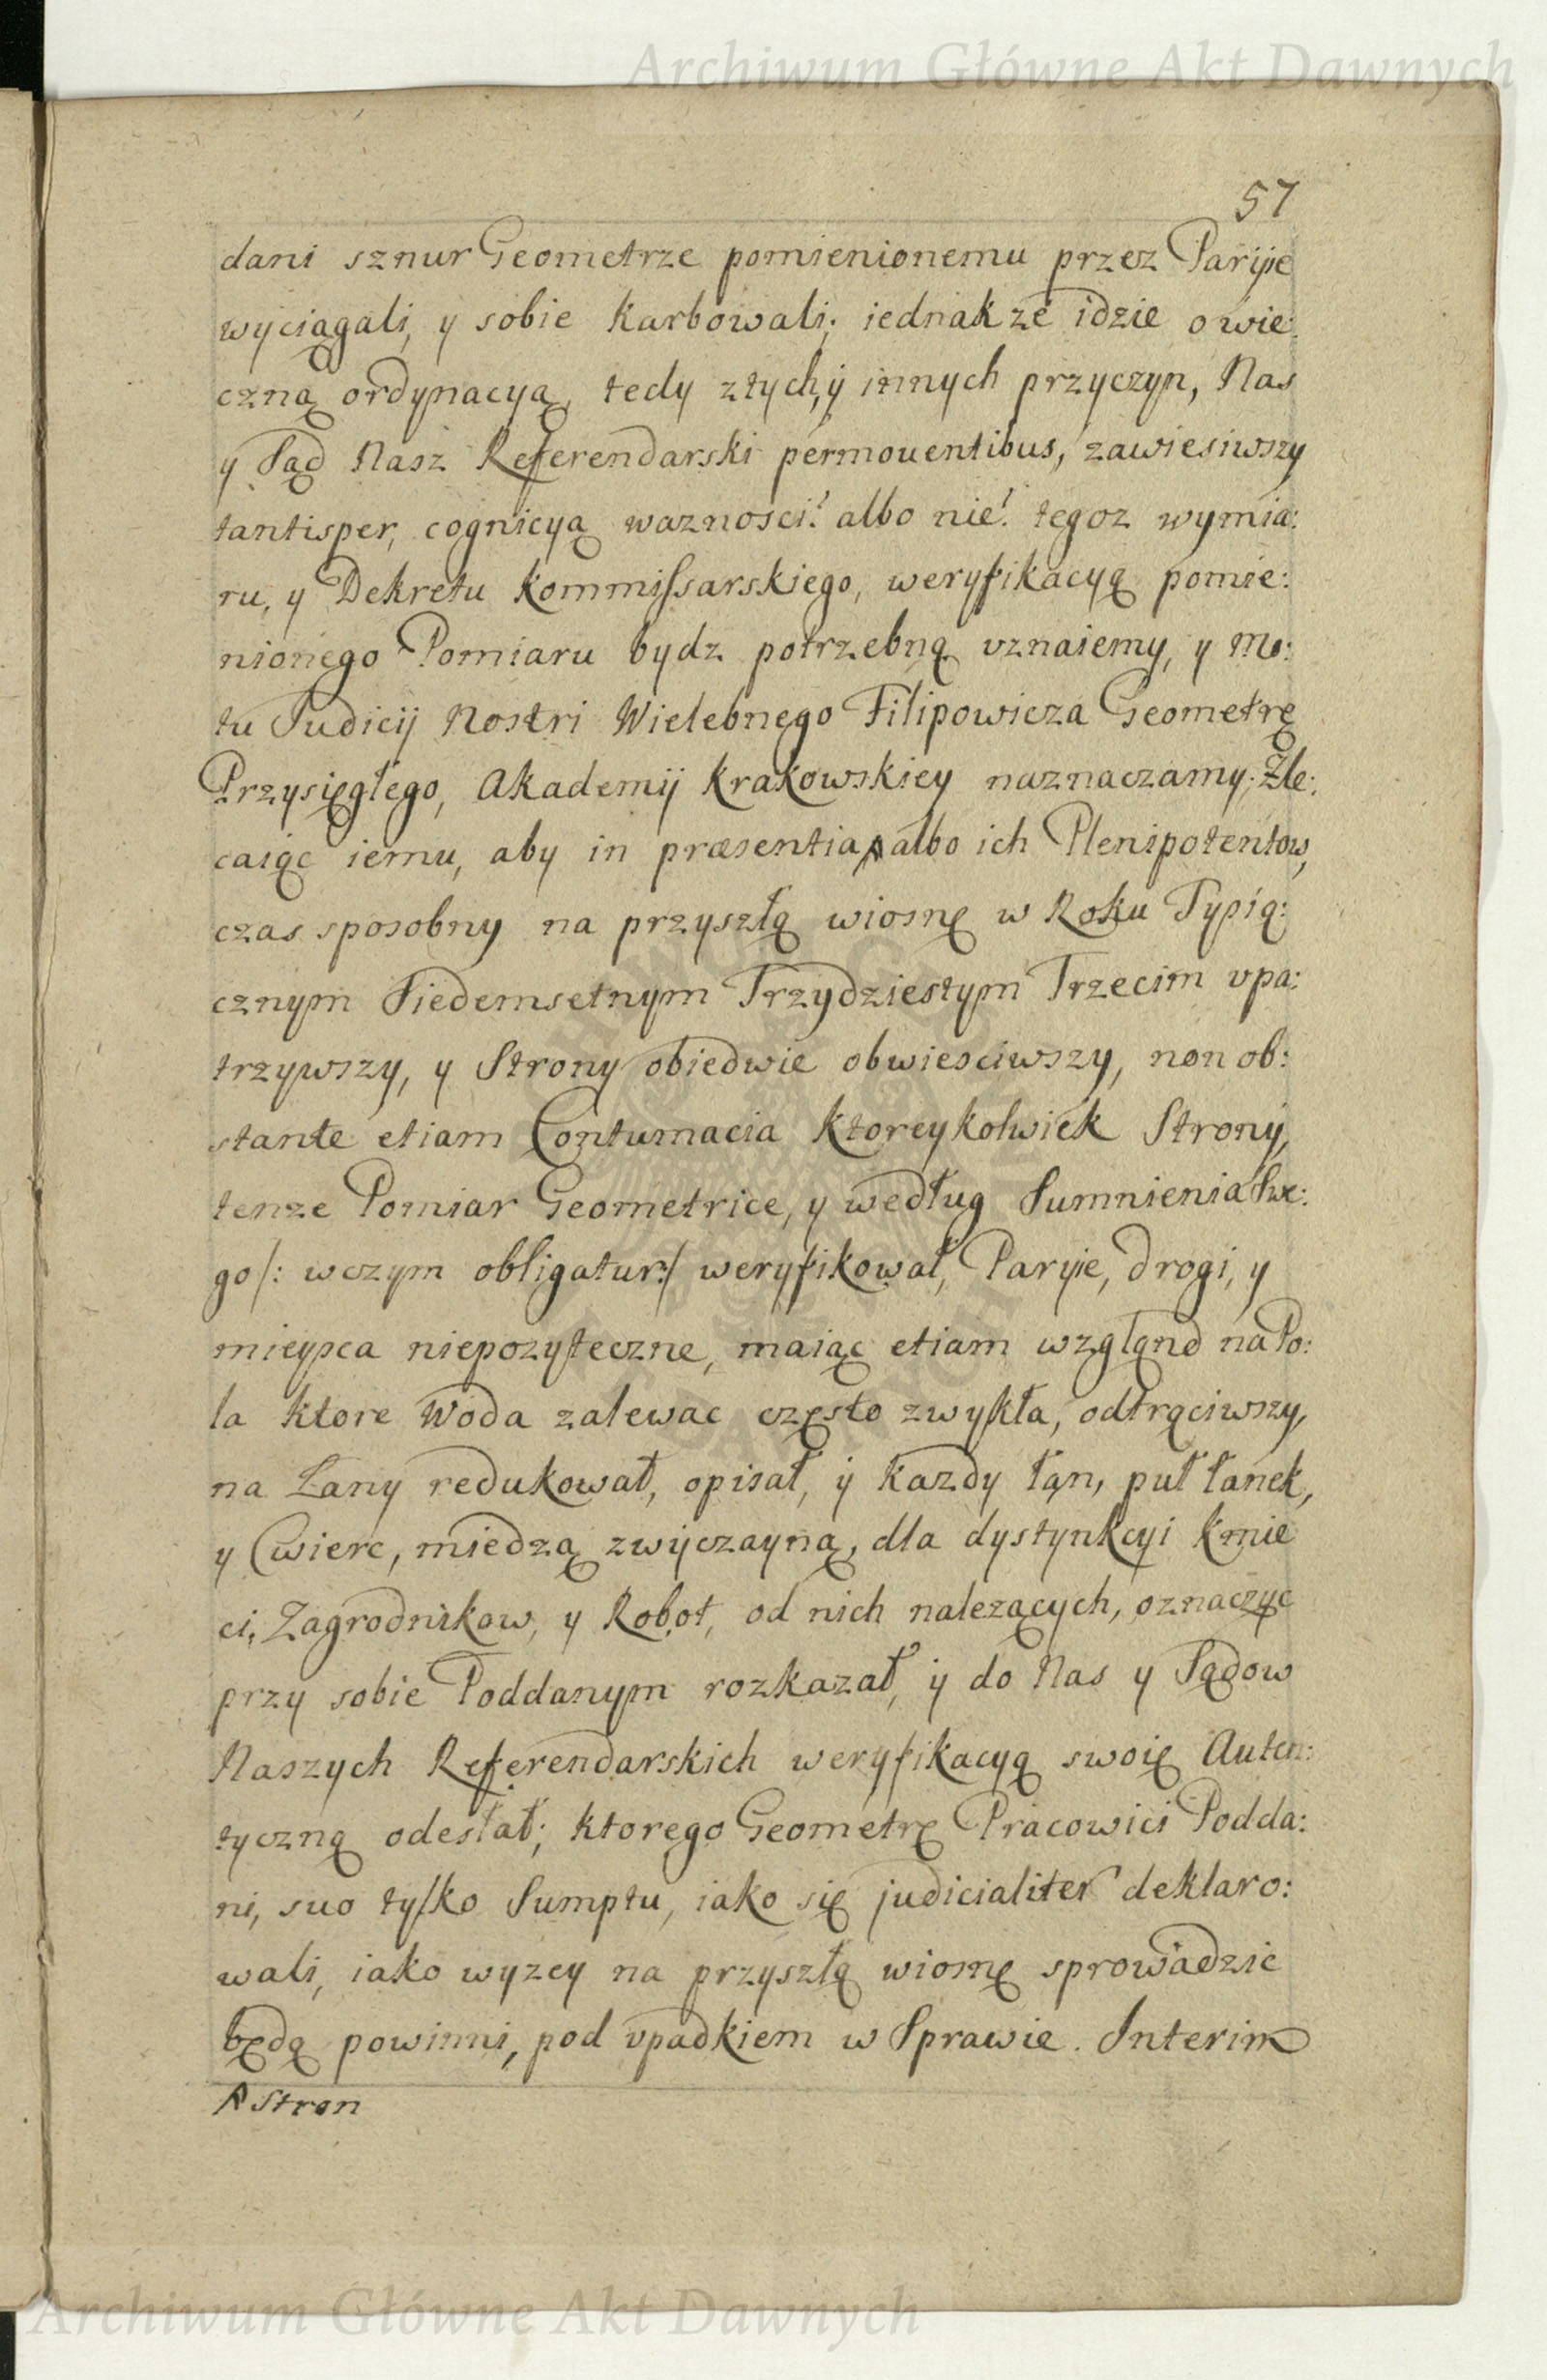 Archiwum Główne Akt Dawnych
57
dani sznur Geometrze pomienionemu przez Paryie
wyciągali, y sobie karbowali; iednak ze idzie o wie:
czną ordynacyą, tedy z tych, y innych przyczyn, Nas
y Sąd Nasz Referendarski permouentibus, zawiesiwszy
tantisper, cognicyą waznosci? albo nie? tegoz wymia:
ru, y Dekretu Kommissarskiego, weryfikacyą pomie:
nionego Pomiaru bydz potrzebną vznaiemy, y Mo:
tu Judicij Nostri Wielebnego Filipowicza Geometrę
Przysięgłego, Akademij Krakowskiey naznaczamy; Zle:
caiąc iemu, aby in præsentia albo ich Plenipotentow,
czas sposobny na przyszłą wiosnę w Roku Tysią:
cznym Siedemsetnym Trzydziestym Trzecim vpa:
trzywszy, y Strony obiedwie obwiesciwszy, non ob:
stante etiam Contumacia ktoreykolwiek Strony,
tenze Pomiar Geometrice, y według Sumnienia Swe:
go /: w czym obligatur :/ weryfikował, Paryie, drogi, y
mieysca niepozyteczne, maiąc etiam wzgląnd na Po:
la ktore Woda zalewac często zwykła, odtrąciwszy,
na Łany redukował, opisał, y kazdy łąn, puł łanek,
y Cwierc, miedzą zwyczayną, dla dystynkcyi Kmie
ci, Zagrodnikow, y Robot, od nich nalezących, oznaczyc
przy sobie Poddanym rozkazał, y do Nas y Sądow
Naszych Referendarskich weryfikacyą swoię Auten:
tyczną odesłał; ktorego Geometrę Pracowici Podda:
ni, suo tylko Sumptu, iako się judicialiter deklaro:
wali, iako wyzey na przyszłą wiosnę sprowadzic
będą powinni, pod vpadkiem w Sprawie. Interim
Stron
Archiwum Główne Akt Dawnych